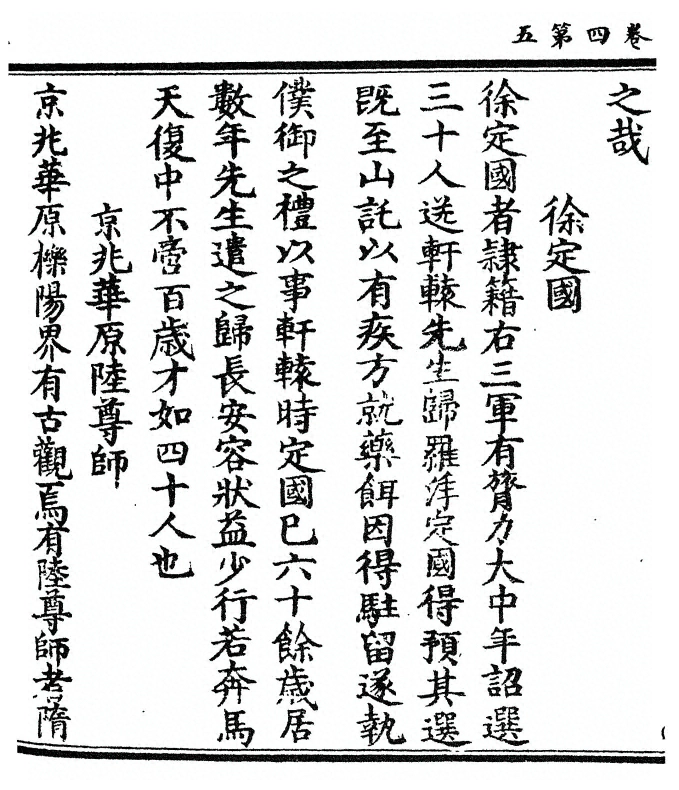 五第四卷
之哉
徐定國
徐定國者隸籍右三軍有膂力大中年詔選
三十人送軒轅先生歸羅浮定國得預其選
既至山託以有疾方就藥餌因得駐留遂執
僕御之禮以事軒轅時定國巳六十餘歲居
數年先生遣之歸長安容狀益少行若奔馬
天復中不啻百歲才如四十人也
京兆華原陸尊師
京兆華原櫟陽界有古觀焉有陸尊師者隋